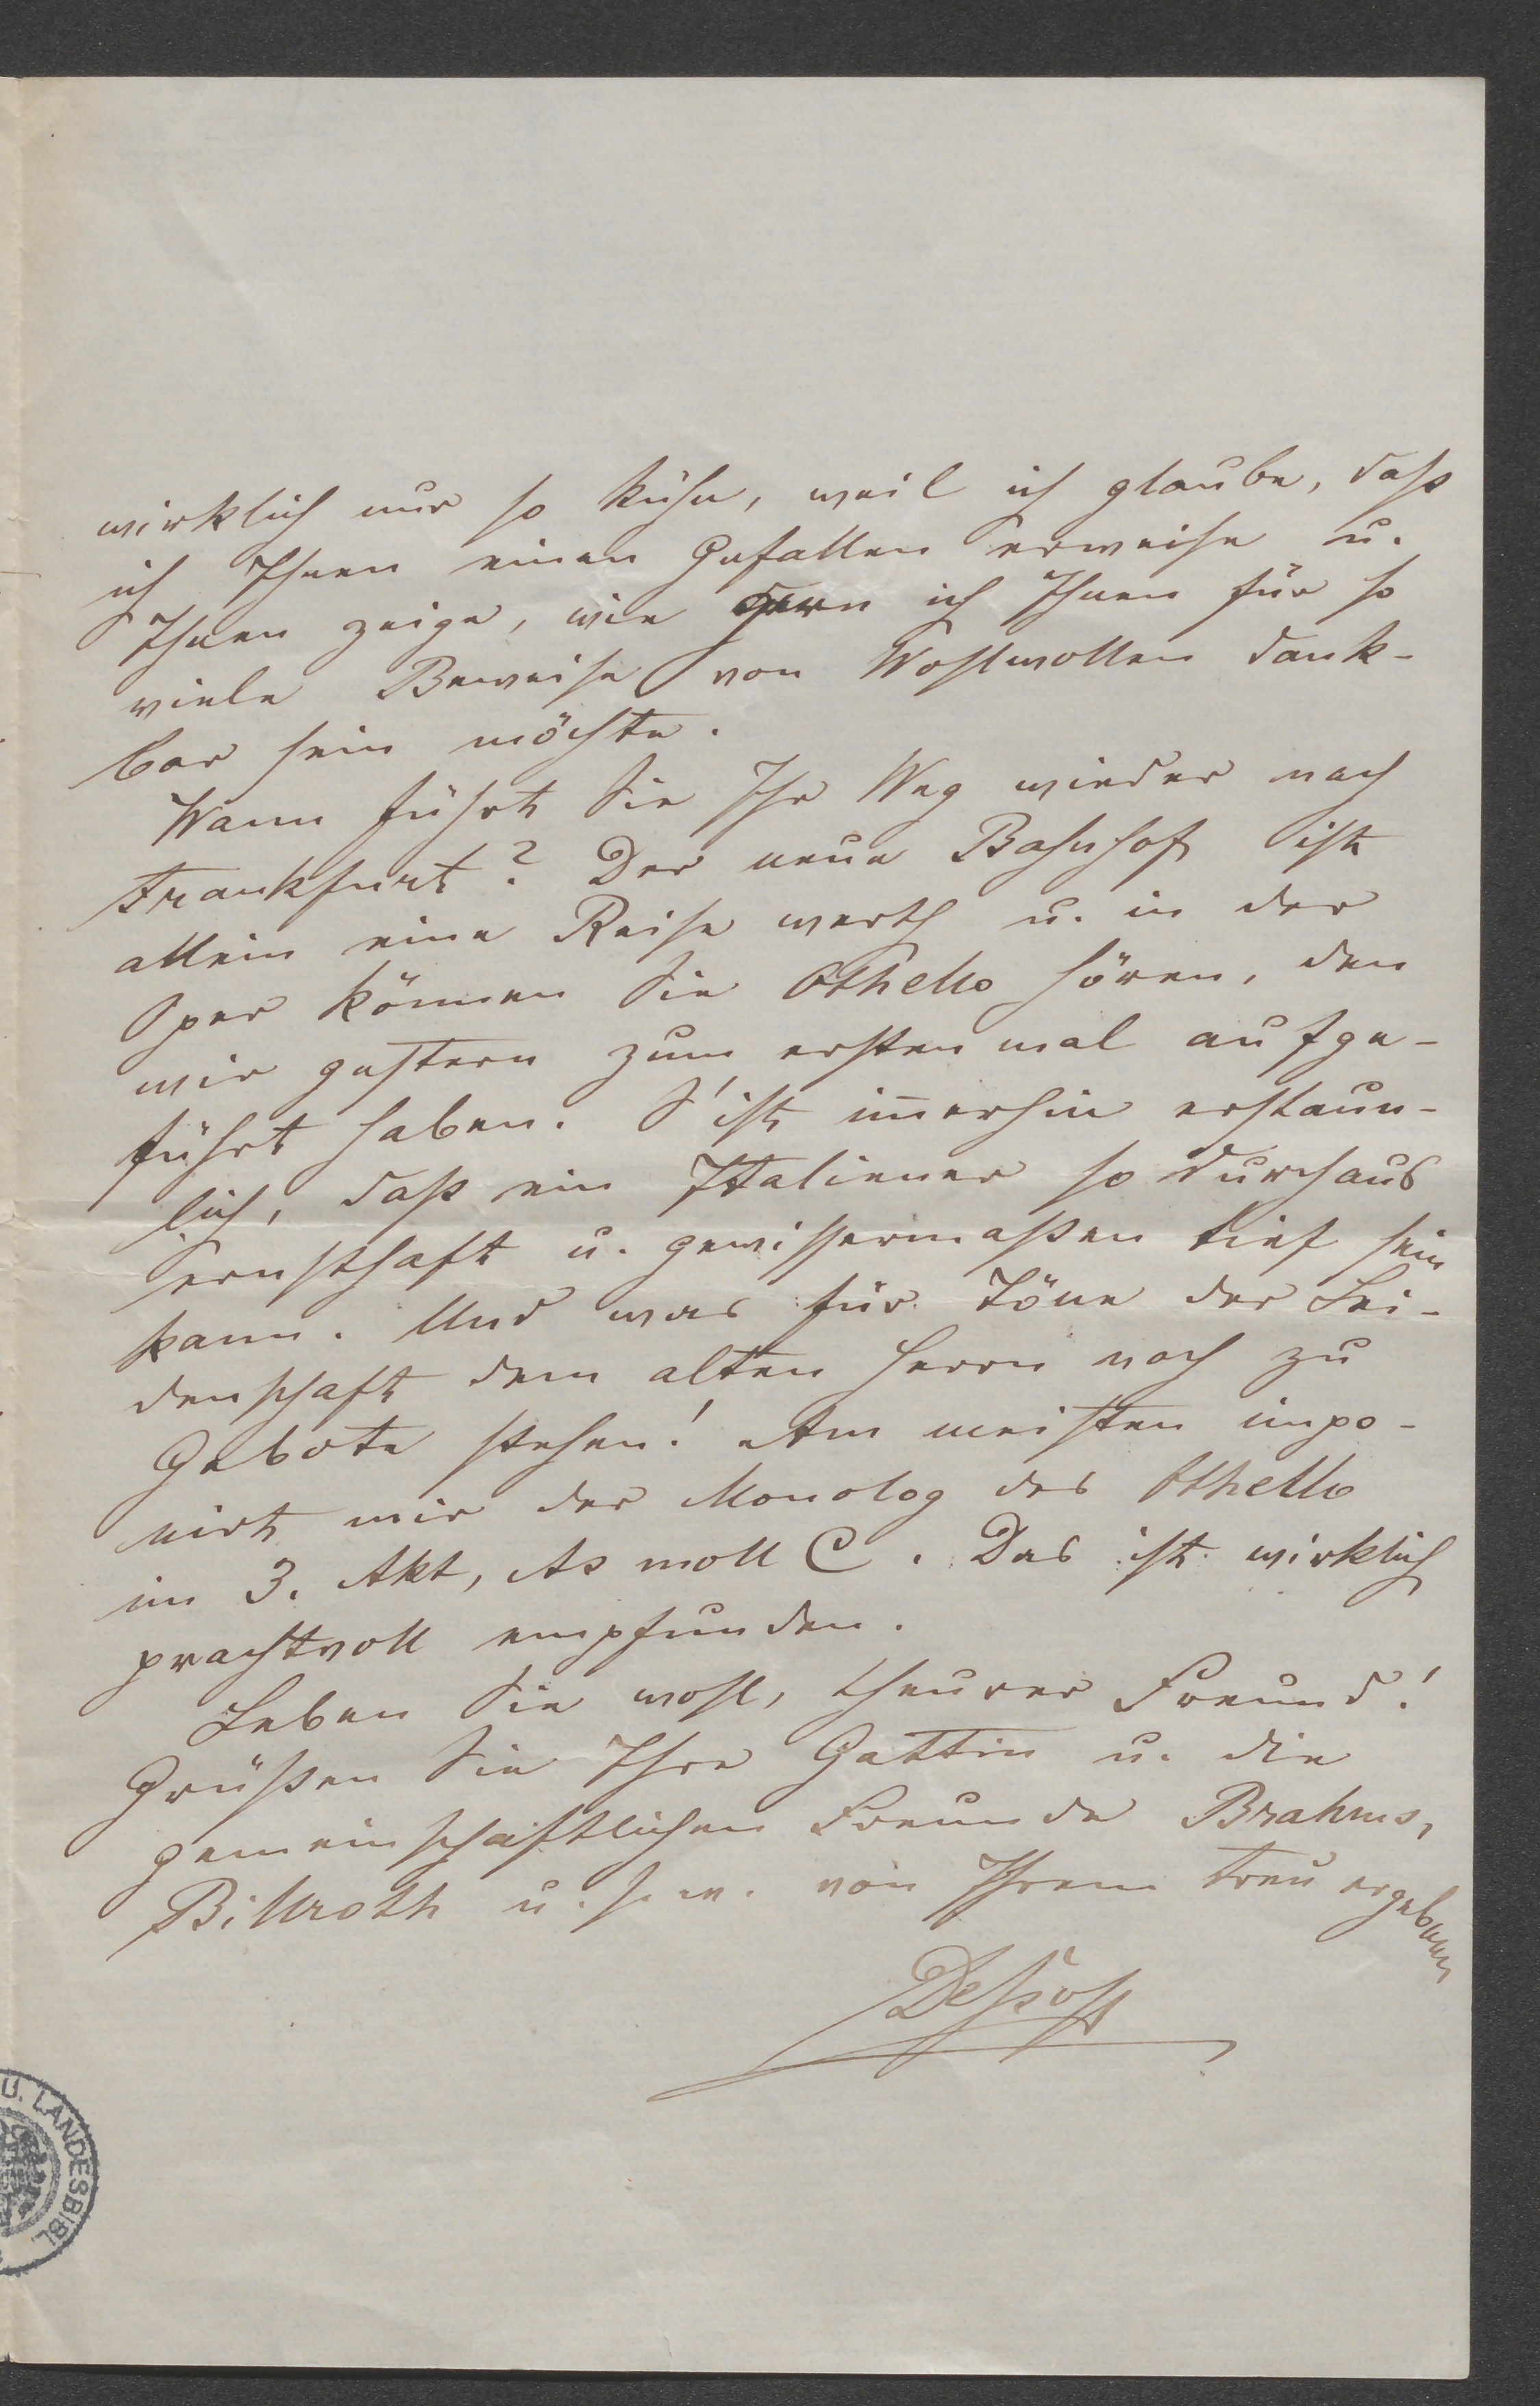 wirklich nur so kühn, weil ich glaube, daß
ich Ihnen einen Gefallen erweise u.
Ihnen zeige, wie gern ich Ihnen für so
viele Beweise von Wohlwollen dank-
bar sein möchte.
Wann führt Sie Ihr Weg wieder nach
Frankfurt? Der neue Bahnhof ist
allein eine Reise werth u. in der
Oper können Sie Othello hören, den
wir gestern zum ersten mal aufge-
führt haben. S'ist im̅erhin erstaun-
lich, daß ein Italiener so durchaus
ernsthaft u. gewissermaßen tief sein
kann. Und was für Töne der Lei-
denschaft dem alten Herrn noch zu
Gebote stehen! Am meisten impo-
nirt mir der Monolog des Othello
im 3. Akt, As moll C. Das ist wirklich
prachtvoll empfunden.
Leben Sie wohl, theurer Freund!
Grüßen Sie Ihre Gattin u. die
gemeinschaftlichen Freunde Brahms,
Billroth u. s. w. von Ihrem treu ergebenen
Dessoff
U. LANDESBIBL.